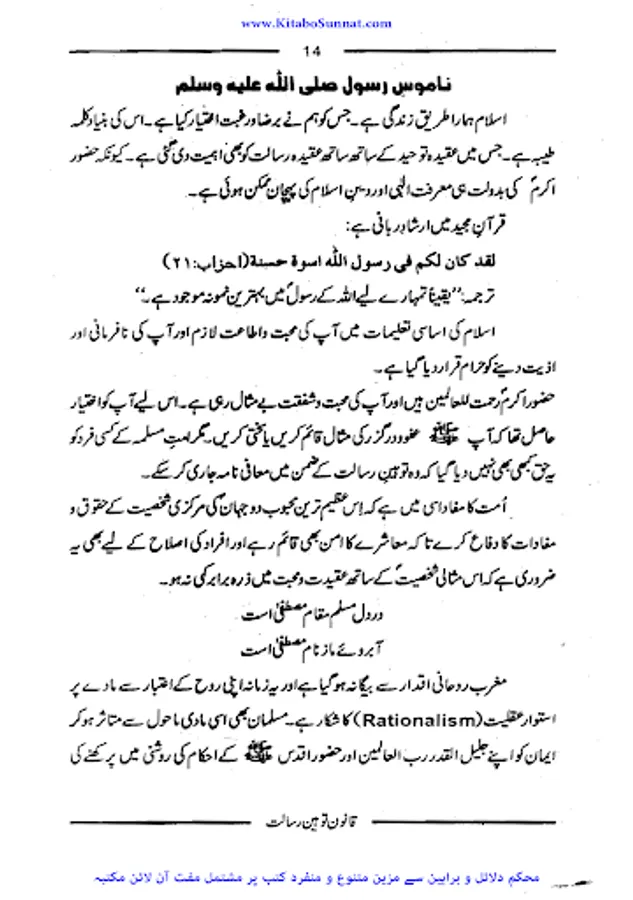 www.KitaboSunnat.com
14
ناموس رسول صلی اللہ علیہ وسلم
اسلام ہمارا طریق زندگی ہے۔ جس کو ہم نے برضا ورغبت اختیار کیا ہے۔ اس کی بنیاد کلمہ
طیبہ ہے۔ جس میں عقیدہ توحید کے ساتھ ساتھ عقیدہ رسالت کو بھی اہمیت دی گئی ہے۔ کیونکہ حضور
اکرمؐ کی بدولت ہی معرفت الٰہی اور دین اسلام کی پہچان ممکن ہوئی ہے۔
قرآن مجید میں ارشاد ربانی ہے:
لقد کان لکم فی رسول اللہ اسوۃ حسنۃ (احزاب:۲۱)
ترجمہ: ’’یقیناً تمہارے لیے اللہ کے رسولؐ میں بہترین نمونہ موجود ہے۔‘‘
اسلام کی اساسی تعلیمات میں آپ کی محبت واطاعت لازم اور آپ کی نافرمانی اور
اذیت دینے کو حرام قرار دیا گیا ہے۔
حضور اکرمؐ رحمت للعالمین ہیں اور آپ کی محبت وشفقت بے مثال رہی ہے۔ اس لیے آپ کو اختیار
حاصل تھا کہ آپ ﷺ عفوودرگزر کی مثال قائم کریں یا سختی کریں۔ مگر امت مسلمہ کے کسی فرد کو
یہ حق کبھی بھی نہیں دیا گیا کہ وہ توہین رسالت کے ضمن میں معافی نامہ جاری کر سکے۔
اُمت کا مفاد اسی میں ہے کہ اِس عظیم ترین محبوب دو جہاںؐ کی مرکزی شخصیت کے حقوق و
مفادات کا دفاع کرے تاکہ معاشرے کا امن بھی قائم رہے اور افراد کی اصلاح کے لیے بھی یہ
ضروری ہے کہ اس مثالی شخصیتؐ کے ساتھ عقیدت ومحبت میں ذرہ برابر کمی نہ ہو۔
در دل مسلم مقام مصطفیٰؐ است
آبروئے ما ز نام مصطفیٰؐ است
مغرب روحانی اقدار سے بیگانہ ہو گیا ہے اور یہ زمانہ اپنی روح کے اعتبار سے مادے پر
استوار عقلیت (Rationalism) کا شکار ہے۔ مسلمان بھی اسی مادی ماحول سے متاثر ہو کر
ایمان کو اپنے جلیل القدر رب العالمین اور حضور اقدس ﷺ کے احکام کی روشنی میں پرکھنے کی
قانون توہین رسالت
محکم دلائل و براہین سے مزین متنوع و منفرد کتب پر مشتمل مفت آن لائن مکتبہ